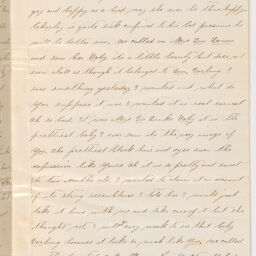 gay and happy as a bird, may she ever be thus happy.
Charley is quite sick confined to his bed presume he
will be better soon, we called on Mrs Lou
and saw her Baby its a little beauty but does not
seem as though it belonged to Lou Darling I
saw something yesterday I wanted and what do
you suppose it was I wanted it in real earnest
oh so bad. It was Mrs De Baby it is the
prettiest baby I ever saw its the very image of
You the prettiest black hair and eyes even the
expression like Yours oh it is so pretty and sweet
its two months old I wanted to claim it on account
of its strong resemblance I told her I would just
take it home with me and take care of it but she
thought not. I every week to see that baby
Darling because it looks so much like You. we called